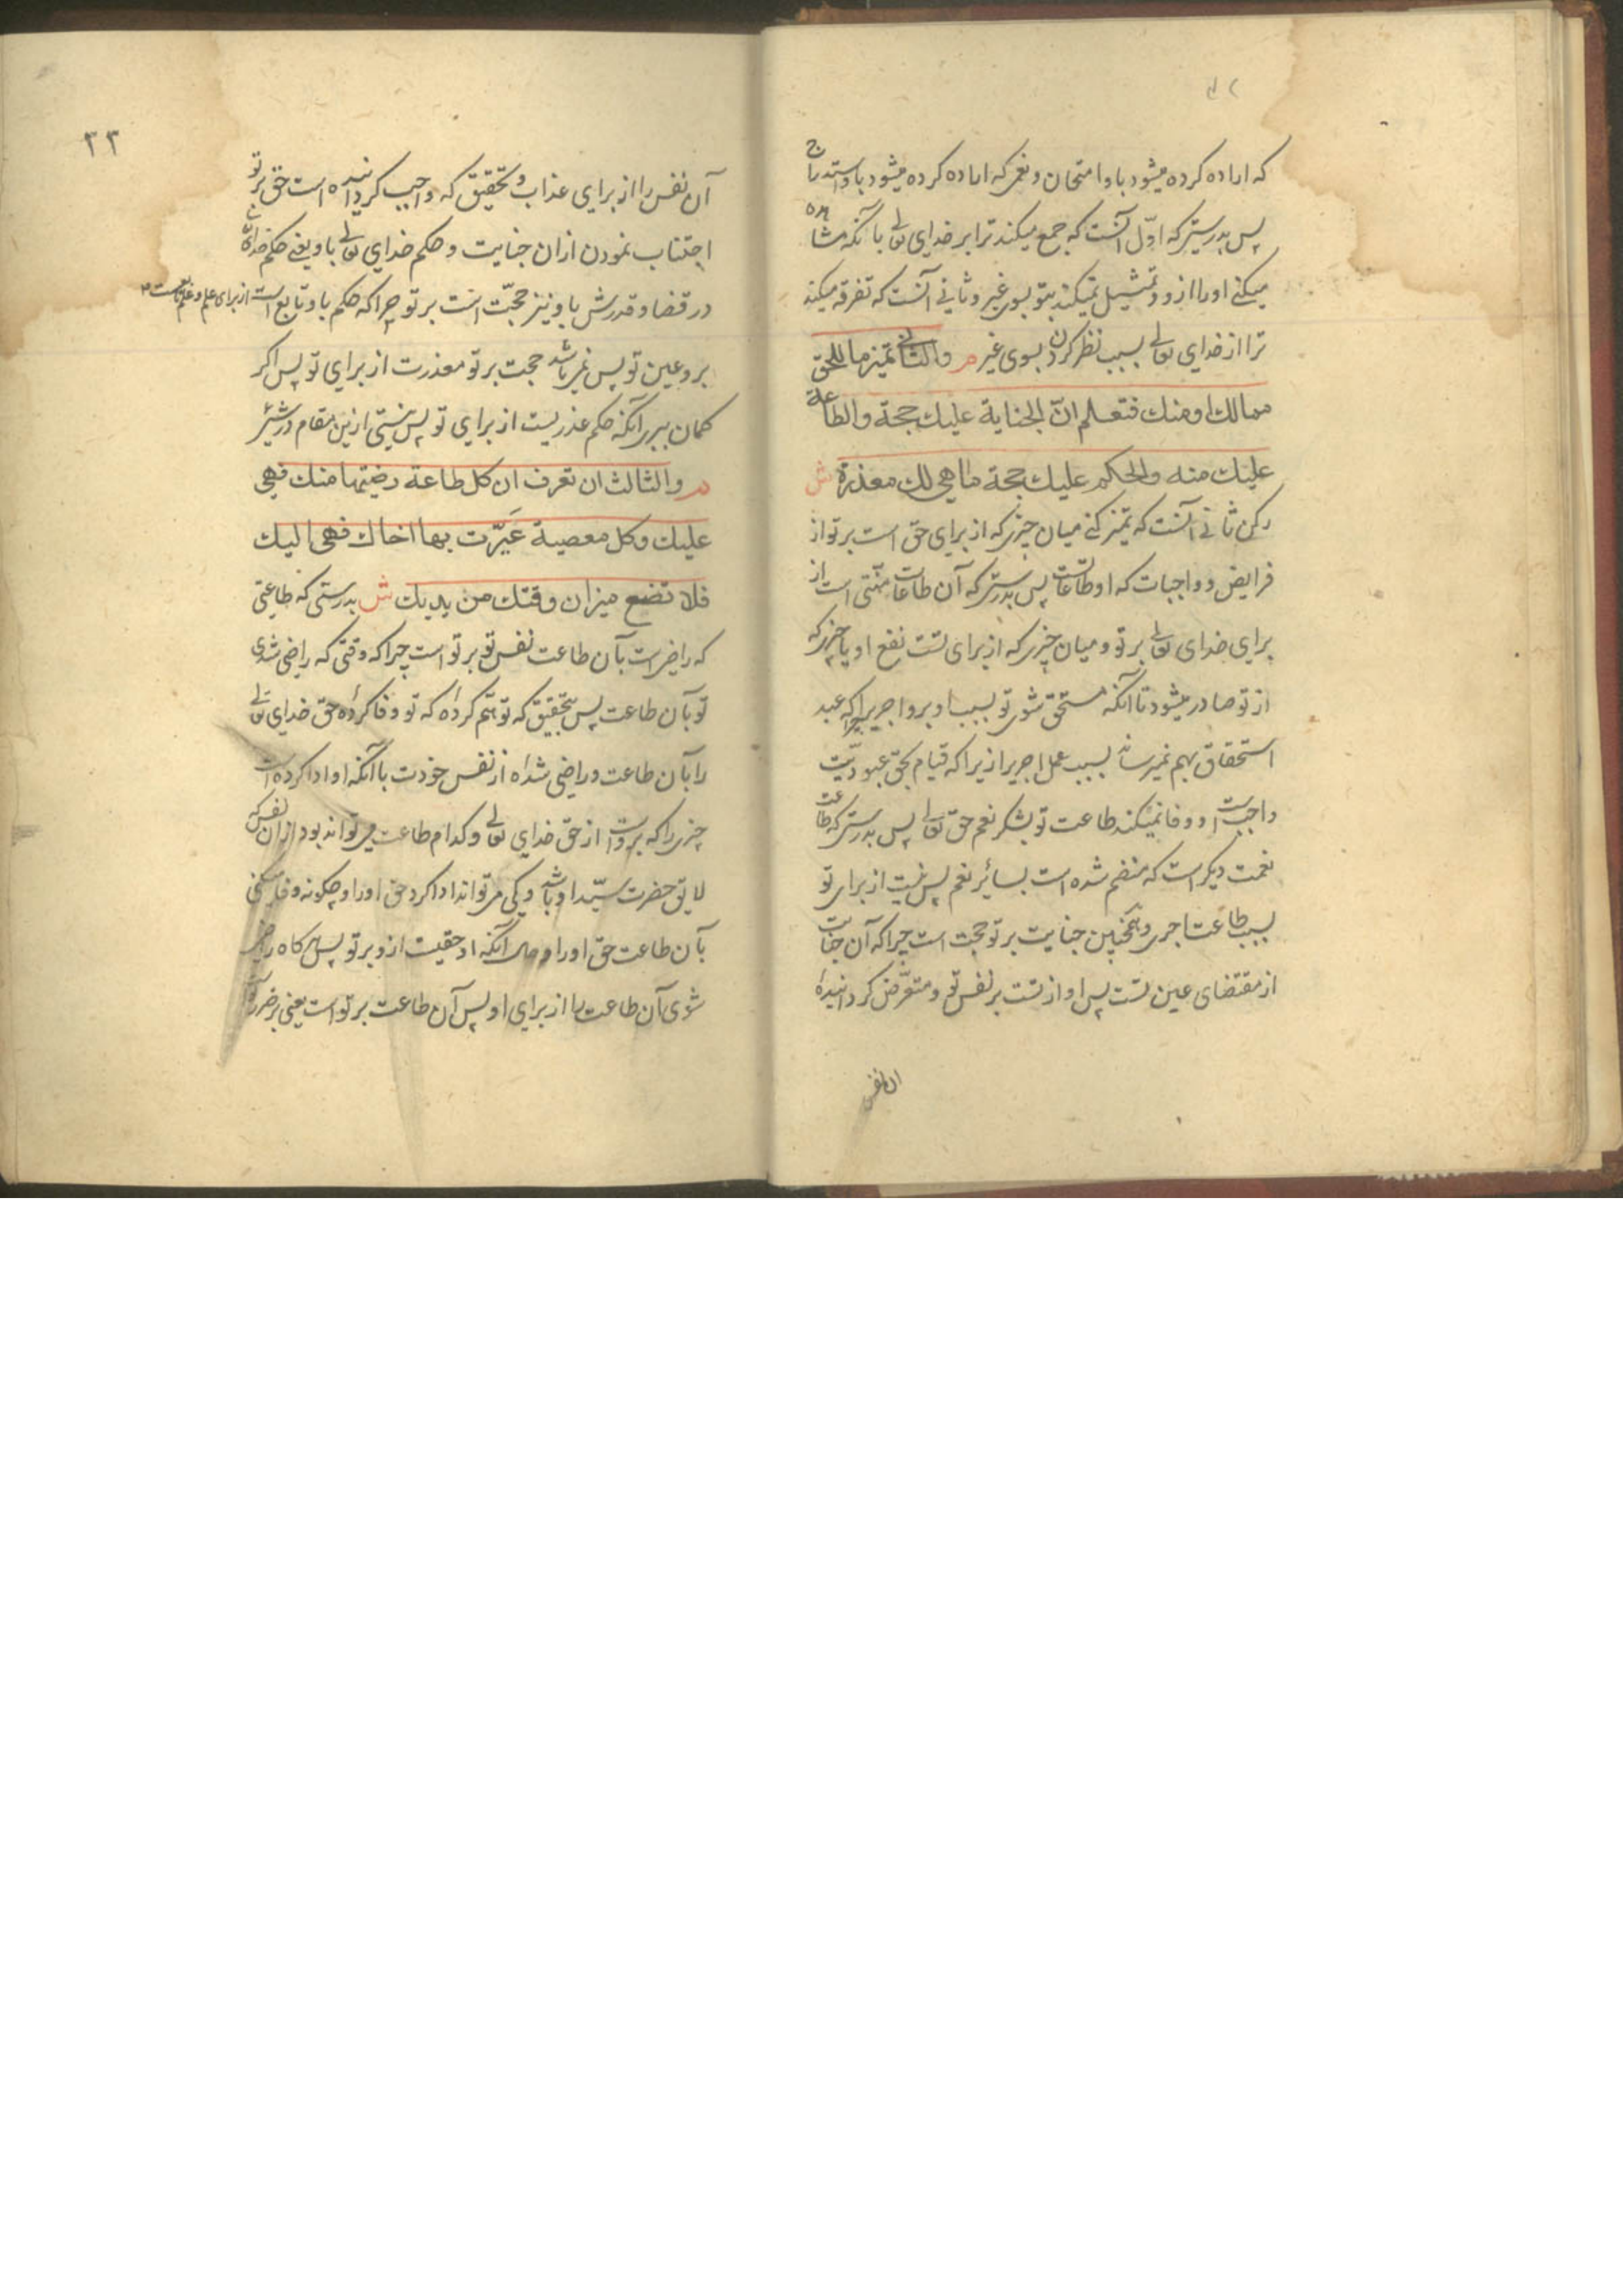 که اراده کرده میشود باو امتحان و نعمی که اراده کرده میشود باو استدراج
پس بدرستیکه اوّل آنست که جمع میکند ترا بر خدای تعالی بآنکه مشاهده
میکنی او را ازو و تمثیل نمیکند بتو بسوی غیر و ثانی آنست که تفرقه میکند
ترا از خدای تعالی بسبب نظر کردن بسوی غیر م والثانی تمییز ما للحق
مما لك او منك فتعلم انّ الجناية عليك حجة والطاعة
عليك منه والحكم عليك حجة ما هي لك معذرة ش
رکن ثانی آنست که تمیز کنی میان چیزی که از برای حق است بر تو از
فرایض و واجبات که او طاعاتست پس بدرستیکه آن طاعات منّتی است از
برای خدای تعالی بر تو و میان چیزی که از برای تست نفع او یا چیزی که
از تو صادر میشود تا آنکه مستحق شوی تو بسبب او برو اجریرا چرا که عبد
استحقاق بهم نمیرساند بسبب عمل اجریرا زیرا که قیام بحق عبودیّت
واجبست او و وفا نمیکند طاعت تو بشکر نعم حق تعالی پس بدرستیکه طاعت
نعمت دیگر است که منضم شده است بسائر نعم پس نیست از برای تو
بسبب طاعت اجری و همچنین جنایت بر تو حجت است چرا که آن جنایت
از مقتضای عین تست پس او از تست بر نفس تو و متعرّض کردانیدهٔ
آن نفس
٢٣
آن نفس را از برای عذاب و بتحقیق که واجب کردانیده است حق بر تو
اجتناب نمودن ازان جنایت و حکم خدای تعالی باو یعنی حکم خدای تعالی
در قضا و قدرش باو نیز حجّت است بر تو چرا که حکم باو تابع است از برای علم و علم تابعست
برو عین تو پس نمی باشد حجت بر تو معذرت از برای تو پس اگر
کمان ببری آنکه حکم عذریست از برای تو پس نیستی ازین مقام در شیئ
م والثالث ان تعرف ان كل طاعة رضيتها منك فهي
عليك وكل معصية عَيّرت بها اخاك فهي اليك
فلا تضع ميزان وقتك من يديك ش بدرستی که طاعتی
که راضیست بآن طاعت نفس تو بر تو است چرا که وقتی که راضی شدی
تو بآن طاعت پس بتحقیق که توهّم کردهٔ که تو وفا کردهٔ حق خدای تعالی
را بآن طاعت و راضی شدهٔ از نفس خودت با آنکه او ادا کرده است
چیزی را که بروست از حق خدای تعالی و کدام طاعت می تواند بود ازان نفس که
لایق حضرت سیّد او باشد و کی می تواند ادا کرد حق او را و چگونه وفا میکنی
بآن طاعت حق او را و حال آنکه او حقیست ازو بر تو پس هر کاه راضی
شوی آن طاعت را از برای او پس آن طاعت بر تو است یعنی بر ضرر تو